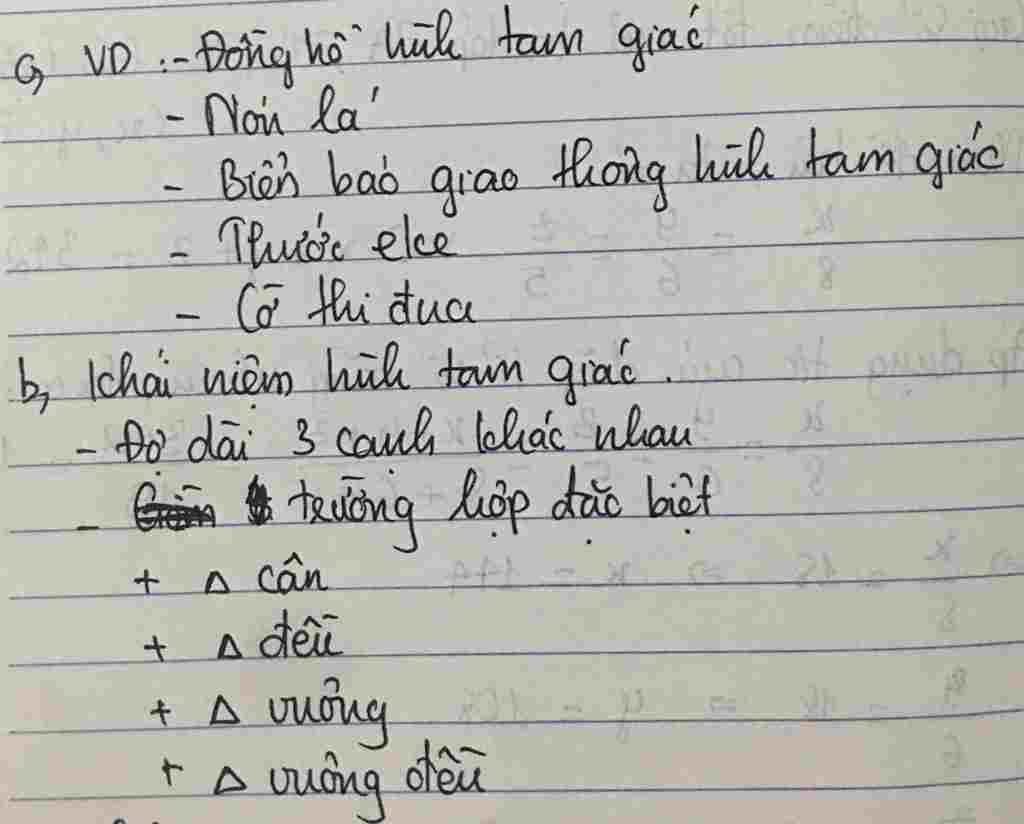 a, VD :- Đồng hồ hình tam giác
- Nón lá
- Biển báo giao thông hình tam giác
- Thước eke
- Cờ thi đua
b, Khái niệm hình tam giác.
- Độ dài 3 cạnh khác nhau
- trường hợp đặc biệt
+ Δ cân
+ Δ đều
+ Δ vuông
+ Δ vuông đều